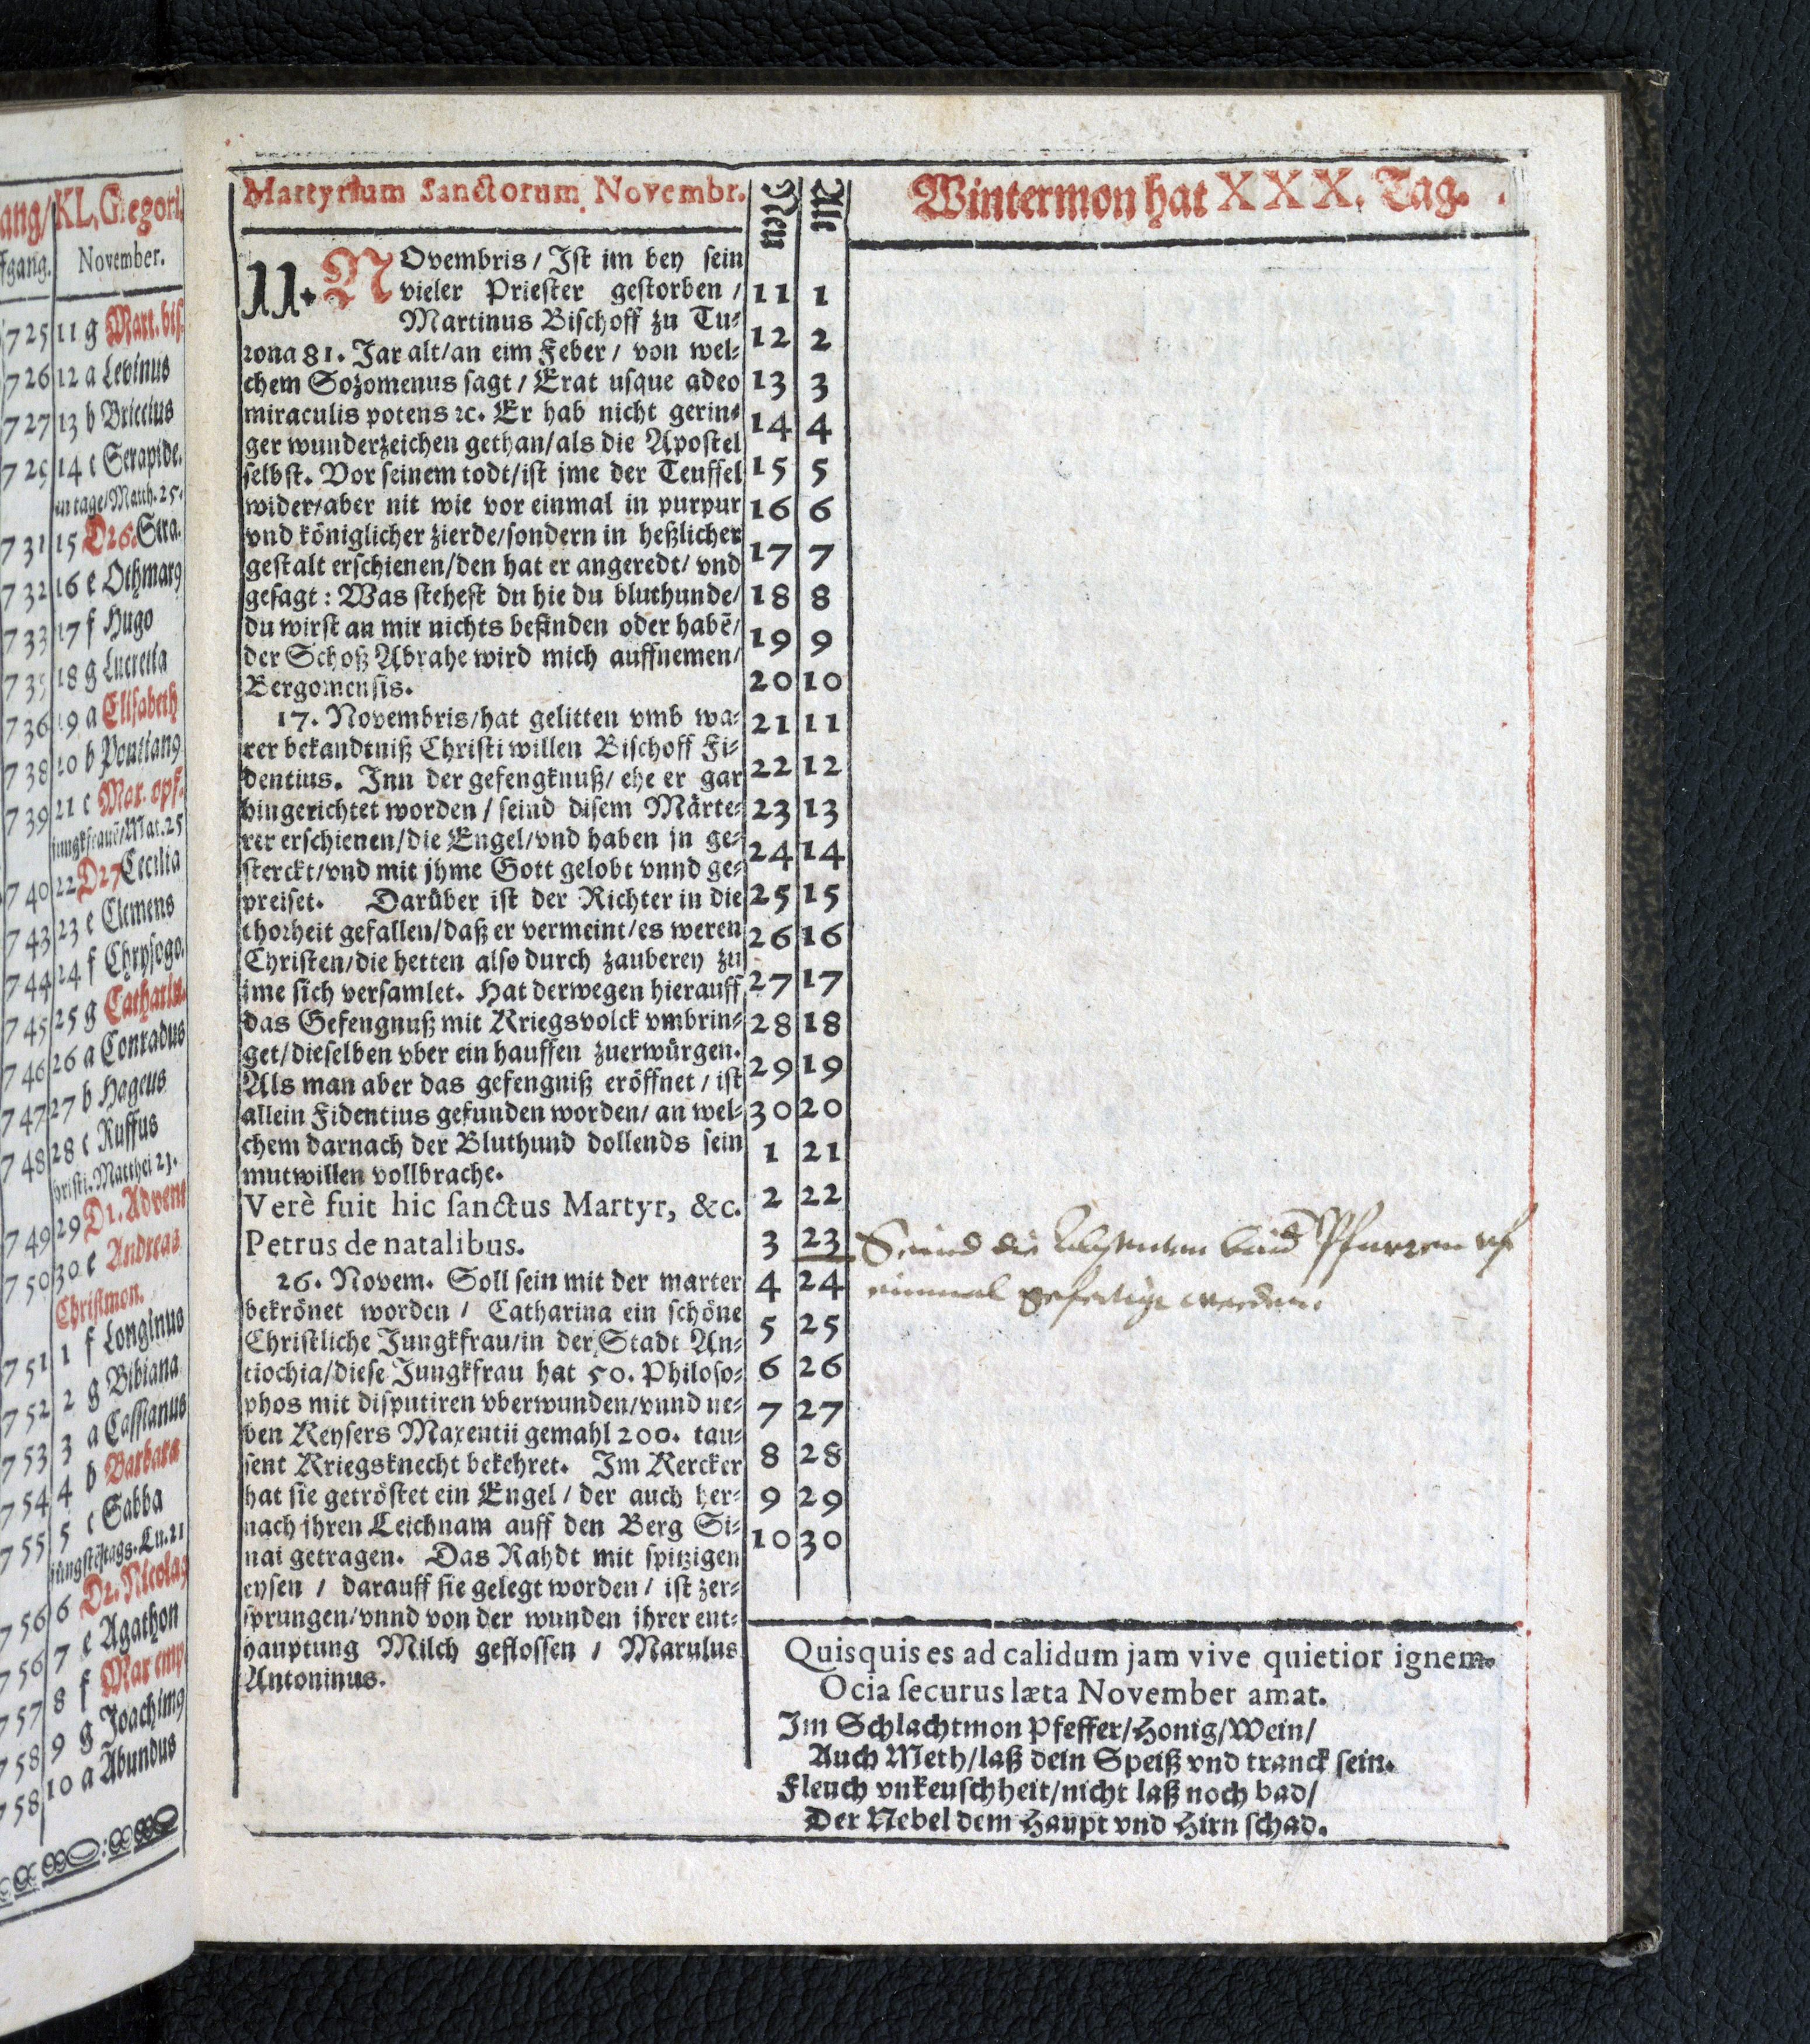 ang/ KL. Gregori.
fgang. November.
7 25 11 g Mart. bis.
7 26 12 a Levinus
7 27 13 b Briccius
7 29 14 c Serapide.
tage/Matth. 25.
7 31 15 D26. Sera.
7 32 16 e Othmarꝰ
7 33 17 f Hugo
7 35 18 g Lucretia
7 36 19 a Elisabeth
7 38 20 b Pontianꝰ
7 39 21 c Mar. opf.
jungkfrauẽ/Mat. 25
7 40 22 D27 Cecilia
7 43 23 e Clemens
7 44 24 f Chrysogo.
7 45 25 g Catharin.
7 46 26 a Conradus
7 47 27 b Hageus
7 48 28 c Ruffus
hristi. Matthei 21.
7 49 29 D1. Advent
7 50 30 e Andreas
Christmon.
7 51 1 f Longinus
7 52 2 g Bibiana
7 53 3 a Cassianus
7 54 4 b Barbara
7 55 5 c Sabba
jüngstẽtags. Lu. 21
7 56 6 D2. Nicolaꝰ
7 56 7 e Agathon
7 57 8 f Mar emp
7 58 9 g Joachimꝰ
7 58 10 a Abundus
Martyrium Sanctorum Novembr.
11. NOvembris / Ist im bey sein
vieler Priester gestorben /
Martinus Bischoff zu Tu⸗
rona 81. Jar alt/an eim Feber / von wel⸗
chem Sozomenus sagt / Erat usque adeo
miraculis potens ꝛc. Er hab nicht gerin⸗
ger wunderzeichen gethan/als die Apostel
selbst. Vor seinem todt/ist jme der Teuffel
wider/aber nit wie vor einmal in purpur
vnd königlicher zierde/sondern in heßlicher
gestalt erschienen/den hat er angeredt/ vnd
gesagt: Was stehest du hie du bluthunde/
du wirst an mir nichts befinden oder habẽ/
der Schoß Abrahe wird mich auffnemen/
Bergomensis.
17. Novembris/hat gelitten vmb wa⸗
rer bekandtniß Christi willen Bischoff Fi⸗
dentius. Inn der gefengknuß/ ehe er gar
hingerichtet worden / seind disem Märte⸗
rer erschienen/die Engel/vnd haben jn ge⸗
sterckt/vnd mit jhme Gott gelobt vnnd ge⸗
preiset. Darüber ist der Richter in die
thorheit gefallen/daß er vermeint/es weren
Christen/die hetten also durch zauberey zu
jme sich versamlet. Hat derwegen hierauff
das Gefengnuß mit Kriegsvolck vmbrin⸗
get/dieselben vber ein hauffen zuerwürgen.
Als man aber das gefengniß eröffnet / ist
allein Fidentius gefunden worden/ an wel⸗
chem darnach der Bluthund dollends sein
mutwillen vollbrache.
Verè fuit hic sanctus Martyr, &c.
Petrus de natalibus.
26. Novem. Soll sein mit der marter
bekrönet worden / Catharina ein schöne
Christliche Jungkfrau/in der Stadt An⸗
tiochia/diese Jungkfrau hat 50. Philoso⸗
phos mit disputiren vberwunden/vnnd ne⸗
ben Keysers Maxentii gemahl 200. tau⸗
sent Kriegsknecht bekehret. Im Kercker
hat sie getröstet ein Engel / der auch her⸗
nach ihren Leichnam auff den Berg Si⸗
nai getragen. Das Rahdt mit spitzigen
eysen / darauff sie gelegt worden / ist zer⸗
sprungen/vnnd von der wunden ihrer ent⸗
hauptung Milch geflossen / Marulus
Antoninus.
Neu Alt
11 1
12 2
13 3
14 4
15 5
16 6
17 7
18 8
19 9
20 10
21 11
22 12
23 13
24 14
25 15
26 16
27 17
28 18
29 19
30 20
1 21
2 22
3 23
4 24
5 25
6 26
7 27
8 28
9 29
10 30
Wintermon hat XXX. Tag.
Seind die Pfarren vf
einmal gefertigt werden.
Quisquis es ad calidum jam vive quietior ignem.
Ocia securus læta November amat.
Im Schlachtmon Pfeffer/Honig/Wein/
Auch Meth/laß dein Speiß vnd tranck sein.
Fleuch vnkeuschheit/nicht laß noch bad/
Der Nebel dem Haupt vnd Hirn schad.